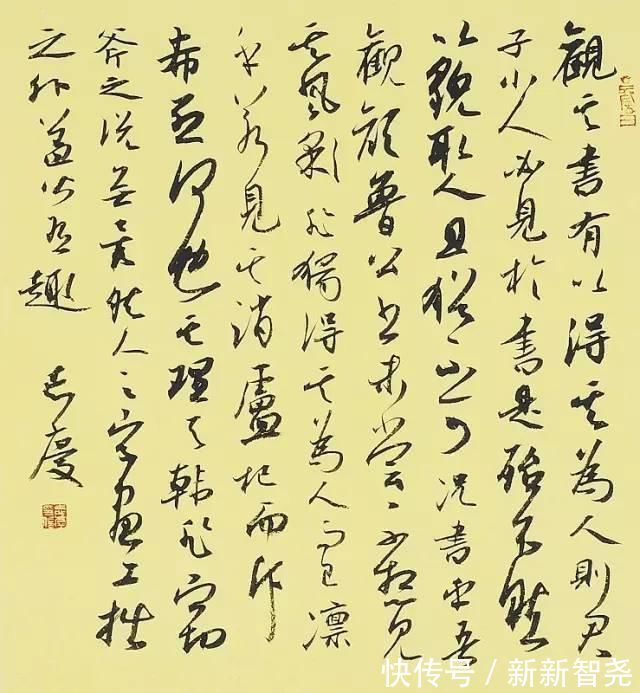 觀其書有以得其為人則君
子小人必見於書是殆不然
以貌取人且猶不可況書乎吾
觀顏魯公書未嘗不想見
其風彩非獨得其為人而已凛
乎若見其誚盧杞而叱
希烈何也其理与韓非窃
斧之說無異然人之字畫工拙
之外蓋皆有趣 志慶
快传号/新新智尧